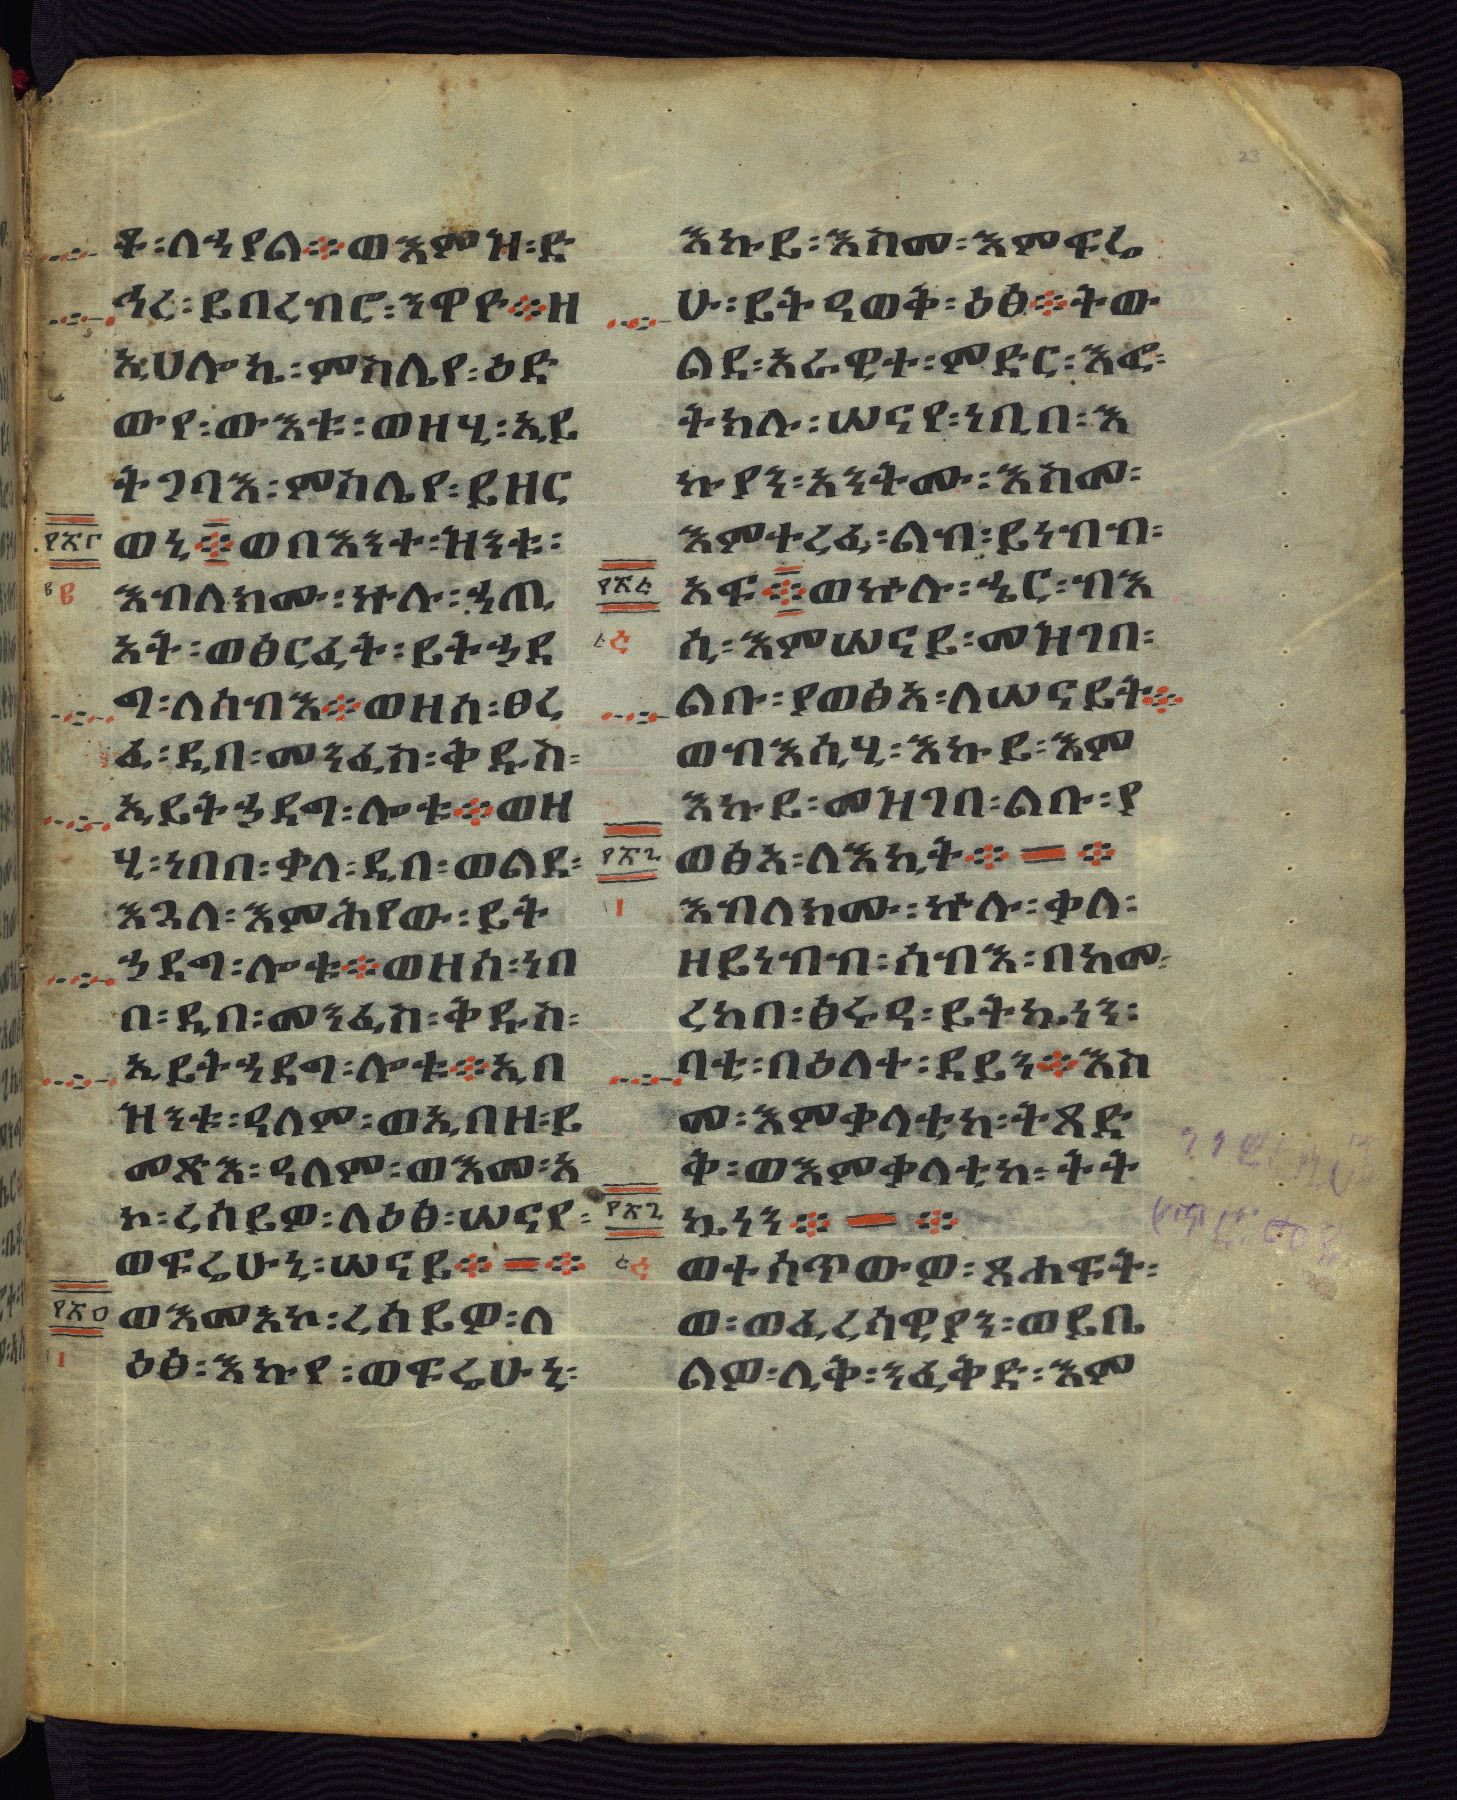 ቶ፡ለኀያል፨ወእምዝ፡ድ
ኅረ፡ይበረብር፡ንዋዮ፨ዘ
ኢሀሎኒ፡ምስሌየ፡ዕድ
ውየ፡ውእቱ፡ወዘሂ፡ኢይ
ትጋባእ፡ምስሌየ፡ይዘር
ወኒ፨ወበእንተ፡ዝንቱ፡
እብለክሙ፡ኵሉ፡ኃጢ
አት፡ወፅርፈት፡ይትኃደ
ግ፡ለሰብእ፨ወዘሰ፡ፀረ
ፈ፡ዲበ፡መንፈስ፡ቅዱስ፡
ኢይትኃደግ፡ሎቱ፨ወዘ
ሂ፡ነበበ፡ቃለ፡ዲበ፡ወልደ፡
እጓለ፡እምሕየው፡ይት
ኃደግ፡ሎቱ፨ወዘሰ፡ነበ
በ፡ዲበ፡መንፈስ፡ቅዱስ፡
ኢይትኀደግ፡ሎቱ፨ኢበ
ዝንቱ፡ዓለም፡ወኢበዘ፡ይ
መጽእ፡ዓለም፡ወእመ፡አ
ኮ፡ረሰይዎ፡ለዕፅ፡ሠናየ፡
ወፍሬሁኒ፡ሠናይ፨=፨
ወእመአኮ፡ረሰይዎ፡ለ
ዕፅ፡እኩየ፡ወፍሬሁኒ፡
እኩይ፡እስመ፡እምፍሬ
ሁ፡ይትዓወቅ፡ዕፅ፨ትው
ልደ፡አራዊተ፡ምድር፡እፎ፡
ትክሉ፡ሠናየ፡ነቢበ፡እ
ኩያን፡አንትሙ፡እስመ፡
እምተረፈ፡ልብ፡ይነብብ፡
አፍ፨ወኵሉ፡ኄር፡ብእ
ሲ፡እምሠናይ፡መዝገበ፡
ልቡ፡ያወፅአ፡ለሠናይት፨
ወብእሲሂ፡እኩይ፡እም
እኩይ፡መዝገበ፡ልቡ፡ያ
ወፅአ፡ለእኪት፨=፨
እብለክሙ፡ኵሉ፡ቃለ፡
ዘይነብብ፡ሰብእ፡በከመ፡
ረከበ፡ፅሩዓ፡ይትኴነን፡
ባቲ፡በዕለተ፡ደይን፨እስ
መ፡እምቃላቲከ፡ትጸድ
ቅ፡ወእምቃላቲከ፡ትት
ኴነን፨=፨
ወተሰጥውዎ፡ጸሐፍት፡
ወ፡ወፈሪሳዊያን፡ወይቤ
ልዎ፡ሊቅ፡ንፈቅድ፡እም